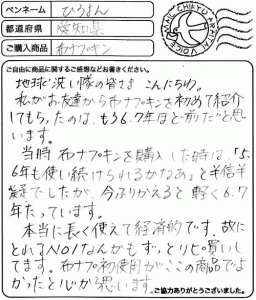 ペンネーム ひろまん
都道府県 愛知県
ご購入商品 布ナプキン
ご自由に商品に関するご感想などお書きください。
地球洗い隊の皆さま こんにちわ。
私がお友達から布ナプキンを初めて紹介
してもらったのは、もう6.7年ほど前だと思
います。
当時 布ナプキンを購入した時は、「5.
6年も使い続けられるかなあ」と半信半
疑でしたが、今ふりかえると軽く6.7
年たっています。
本当に長く使えて経済的です。故に
とれるNO1なんかもずっとリピ買いし
てます。布ナプ初使用がここの商品でよ
かったと心から思います。
ご協力ありがとうございました。